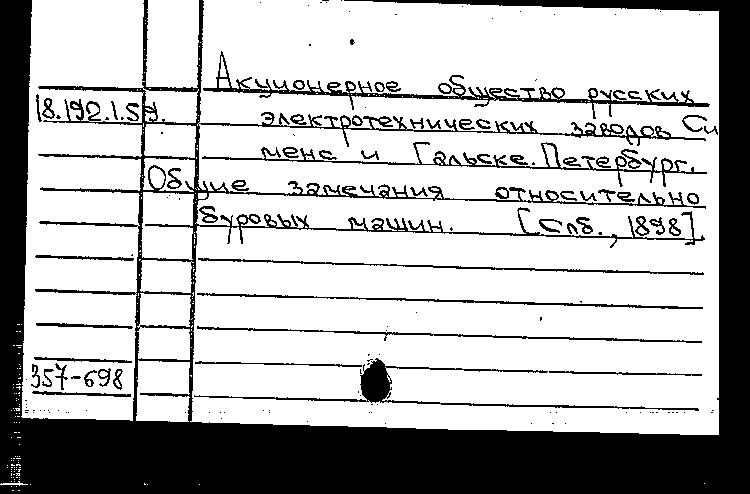 Акционерное общество русских
18.192.1.59. электротехнических заводов Си
менс и Гальске. Петербург.
Общие замечания относительно
буровых машин. [Спб., 1898].
357-698